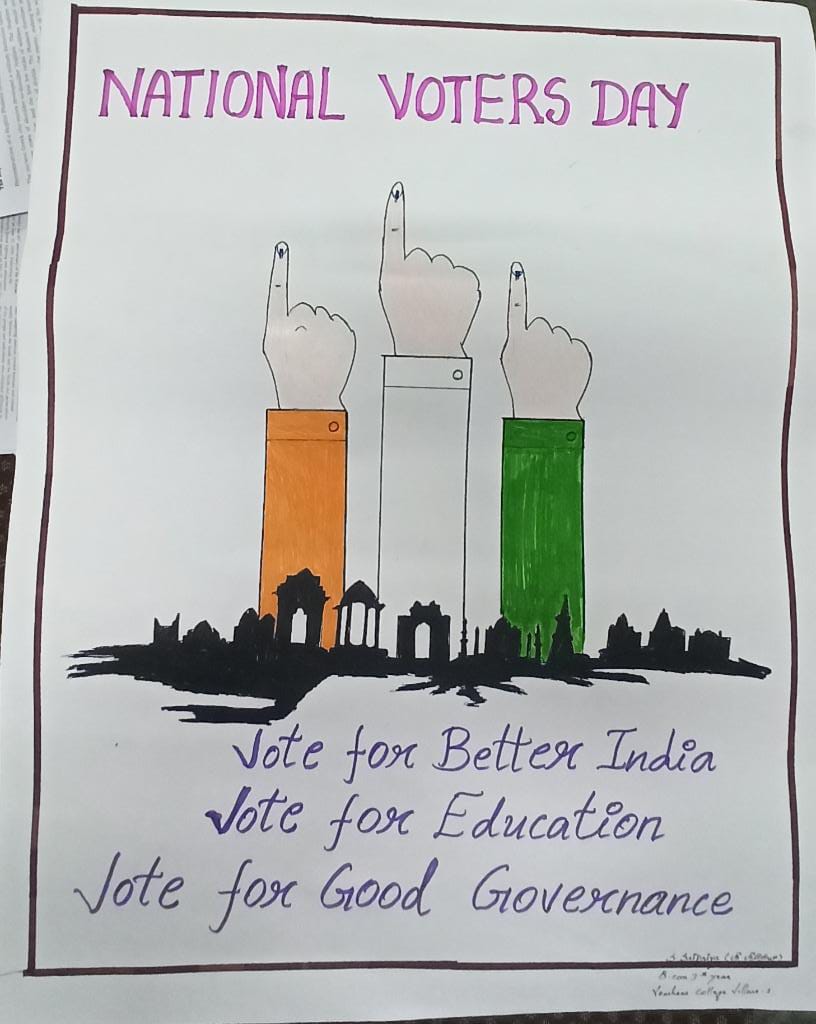 NATIONAL VOTERS DAY
Vote for Better India
Vote for Education
Vote for Good Governance
B.com 3rd year
College